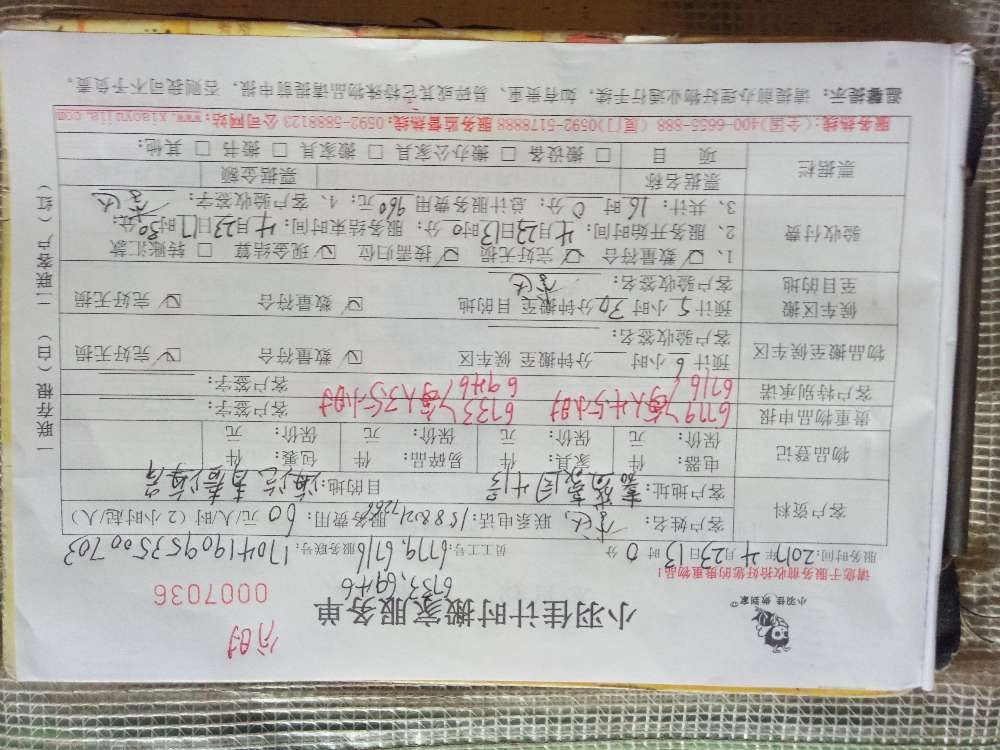 分时
小羽佳计时搬家服务单
0007036
小羽佳 快到家
6733,6946
请您于服务前收拾好您的贵重物品!
服务时间:2017年4月23日13时0分 员工工号:6779,6716 服务联号:17041909535500703
客户资料 客户姓名: 联系电话: 服务费用:60元/人/时(2小时起/人)
客户地址: 目的地:
物品登记 电器: 件 家具: 件 易碎品: 件 包裹: 件
保价: 元 保价: 元 保价: 元 保价: 元
贵重物品申报 客户签字:
6779 6733
客户特别承诺 客户签字:
6716 6946
物品搬至候车区 预计6小时 分钟搬至 候车区 数量符合 完好无损
客户验收签名:
候车区搬至目的地 预计5小时30分钟搬至 目的地 数量符合 完好无损
客户验收签名:
验收付费 1、 数量符合 完好无损 按需归位 现金结算 转账汇款
2、服务开始时间:4月23日13时0分; 服务结束时间:4月23日17时30分;
3、共计:16时0分; 总计服务费用960元; 4、客户验收签字:
票据栏 票据名称 票据金额
项目 搬设备 搬办公家具 搬家具 搬书 其他:
服务热线:(全国)400-6655-888 (厦门)0592-5178888 服务监督热线:0592-5888123 公司网站:www.xiaoyujia.com
温馨提示:请提前办理好物业通行手续,如有贵重、易碎或其它特殊物品请提前申报,否则我司不予负责。
一联存根(白) 二联客户(红)